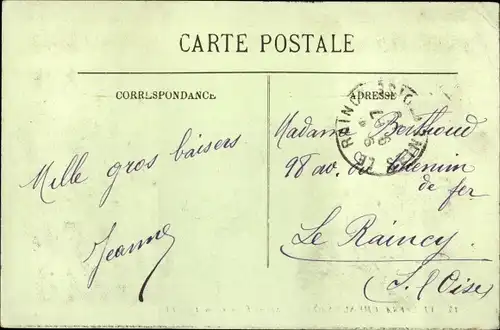 CARTE POSTALE
CORRESPONDANCE
ADRESSE
Mille gros baisers
Jeanne
Madame Berthoud
98 av. du Chemin
de fer
Le Raincy
(S. & Oise)
LE RAINCY